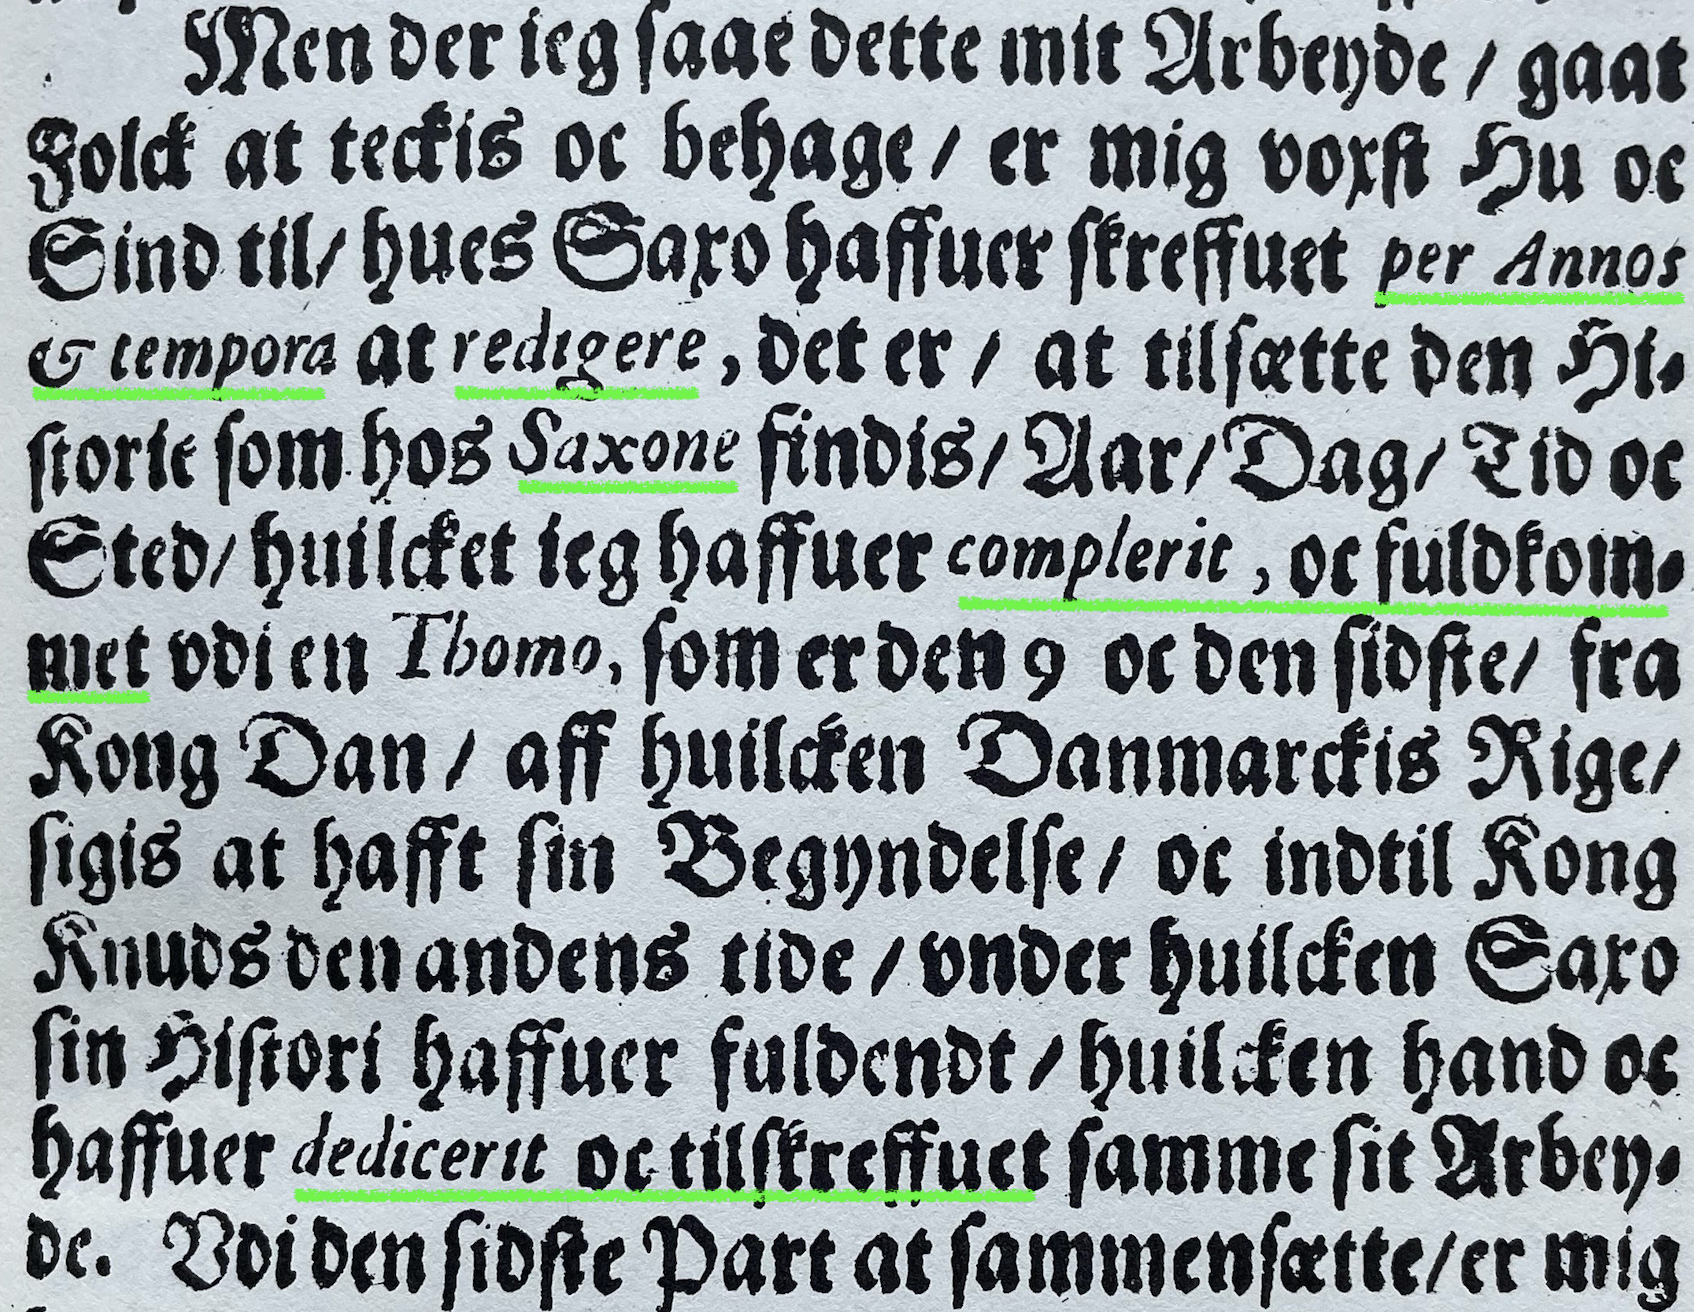 Men der ieg saae dette mit Arbeyde / gaat
Folck at teckis oc behage / er mig voxst Hu oc
Sind til / hues Saxo haffuer skreffuet per Annos
& tempora at redigere, det er / at tilsætte den Hi-
storie som hos Saxone findis / Aar / Dag / Tid oc
Sted / huilcket ieg haffuer complerit, oc fuldkom-
met vdi en Thomo, som er den 9 oc den sidste / fra
Kong Dan / aff huilcken Danmarckis Rige /
sigis at hafft sin Begyndelse / oc indtil Kong
Knuds den andens tide / vnder huilcken Saxo
sin Histori haffuer fuldendt / huilcken hand oc
haffuer dedicerit oc tilskreffuet samme sit Arbey-
de. Vdi den sidste Part at sammensætte / er mig